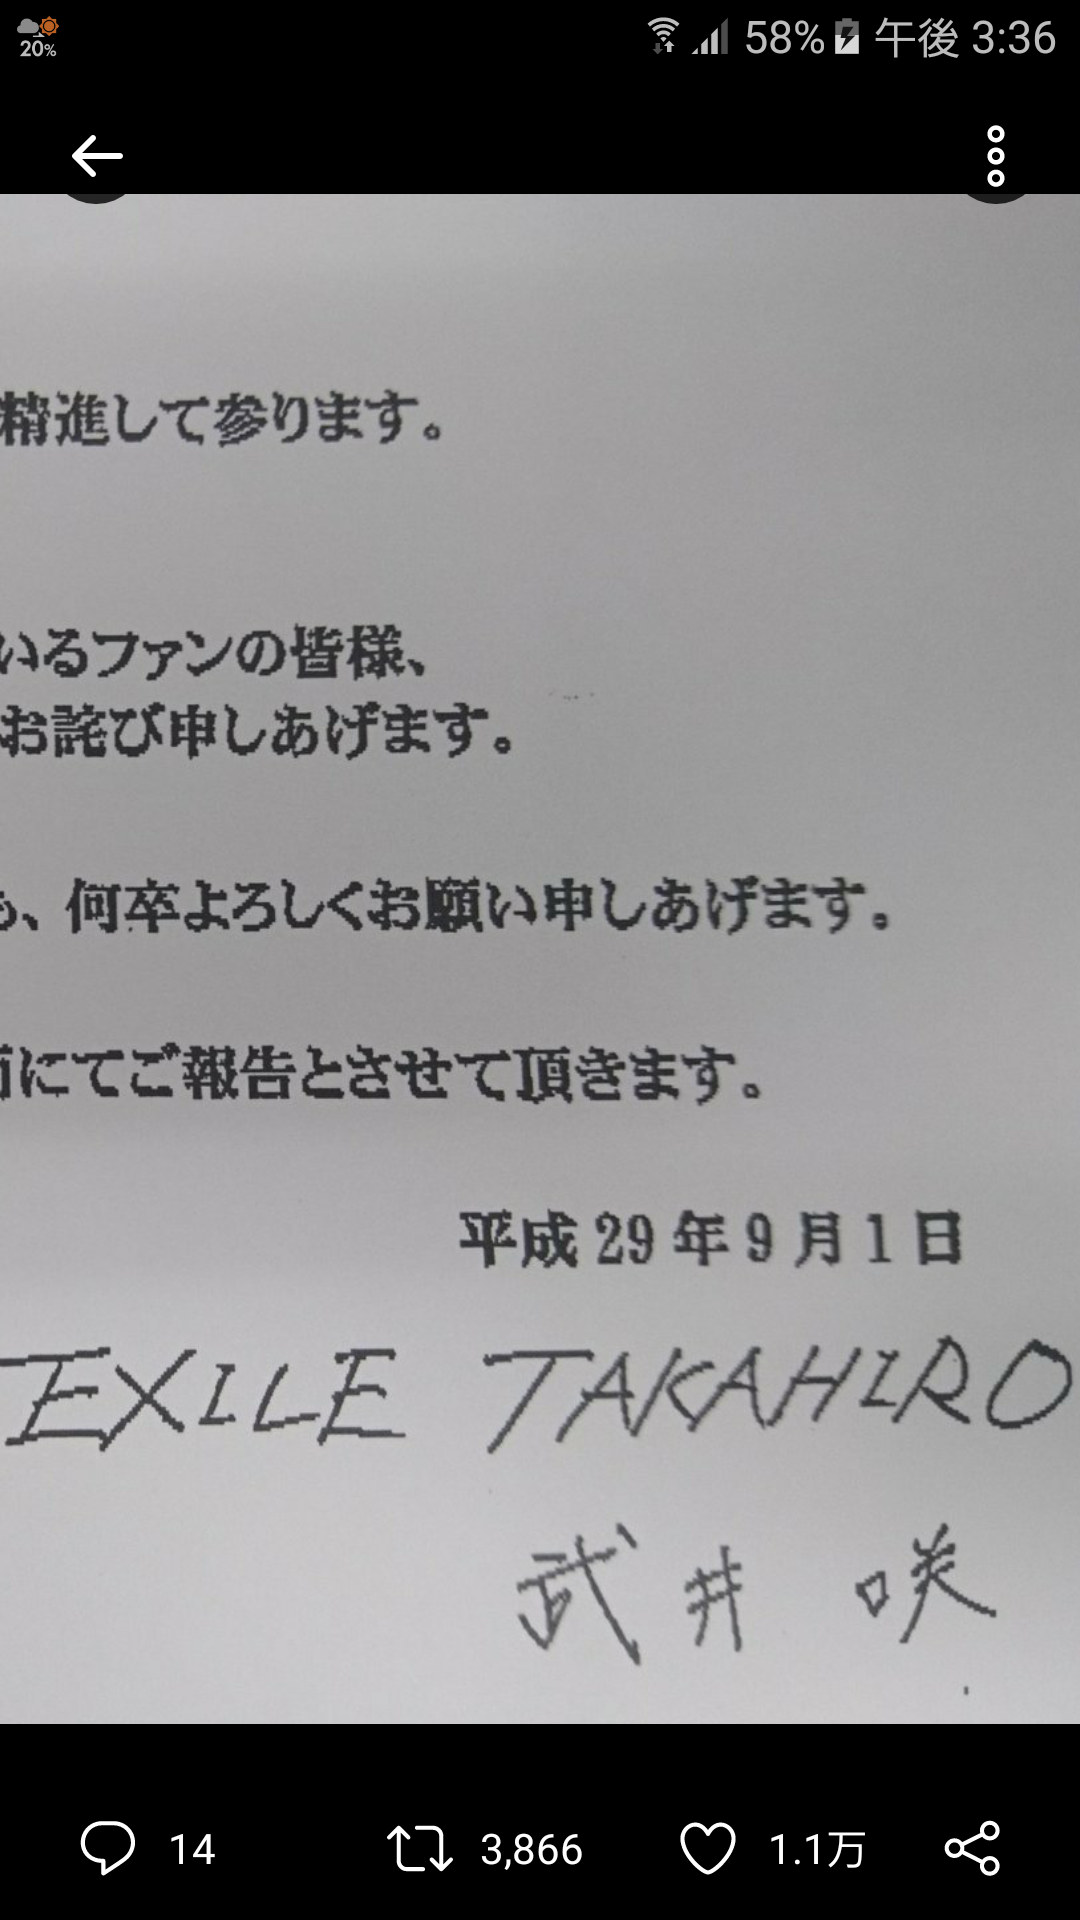 20%
58% 午後 3:36
精進して参ります。
いるファンの皆様、
お詫び申しあげます。
、何卒よろしくお願い申しあげます。
にてご報告とさせて頂きます。
平成 29 年 9 月 1 日
EXILE TAKAHIRO
武井 咲
14
3,866
1.1万